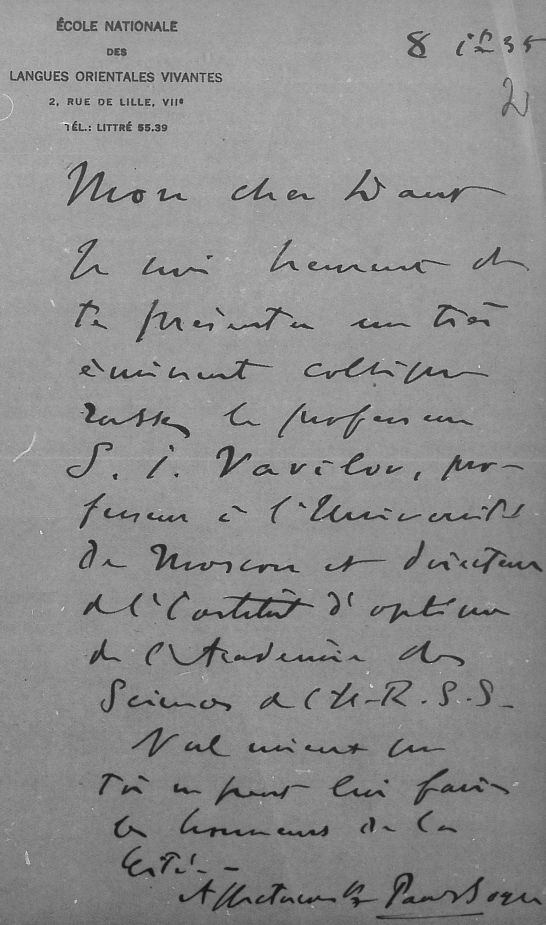 ÉCOLE NATIONALE
DES
LANGUES ORIENTALES VIVANTES
2, RUE DE LILLE, VIIe
TÉL.: LITTRÉ 55.39
8 35
2
Mon cher
Je suis heureux de
te présenter un très
éminent collègue
russe, le professeur
S. I. Vavilov, pro-
fesseur à l'Université
de Moscou et directeur
de l'Institut d'optique
de l'Académie des
Sciences de l'U.R.S.S.
Nul mieux que
toi ne peut lui faire
les honneurs de la
Cité.
Affectueusement Paul Boyer